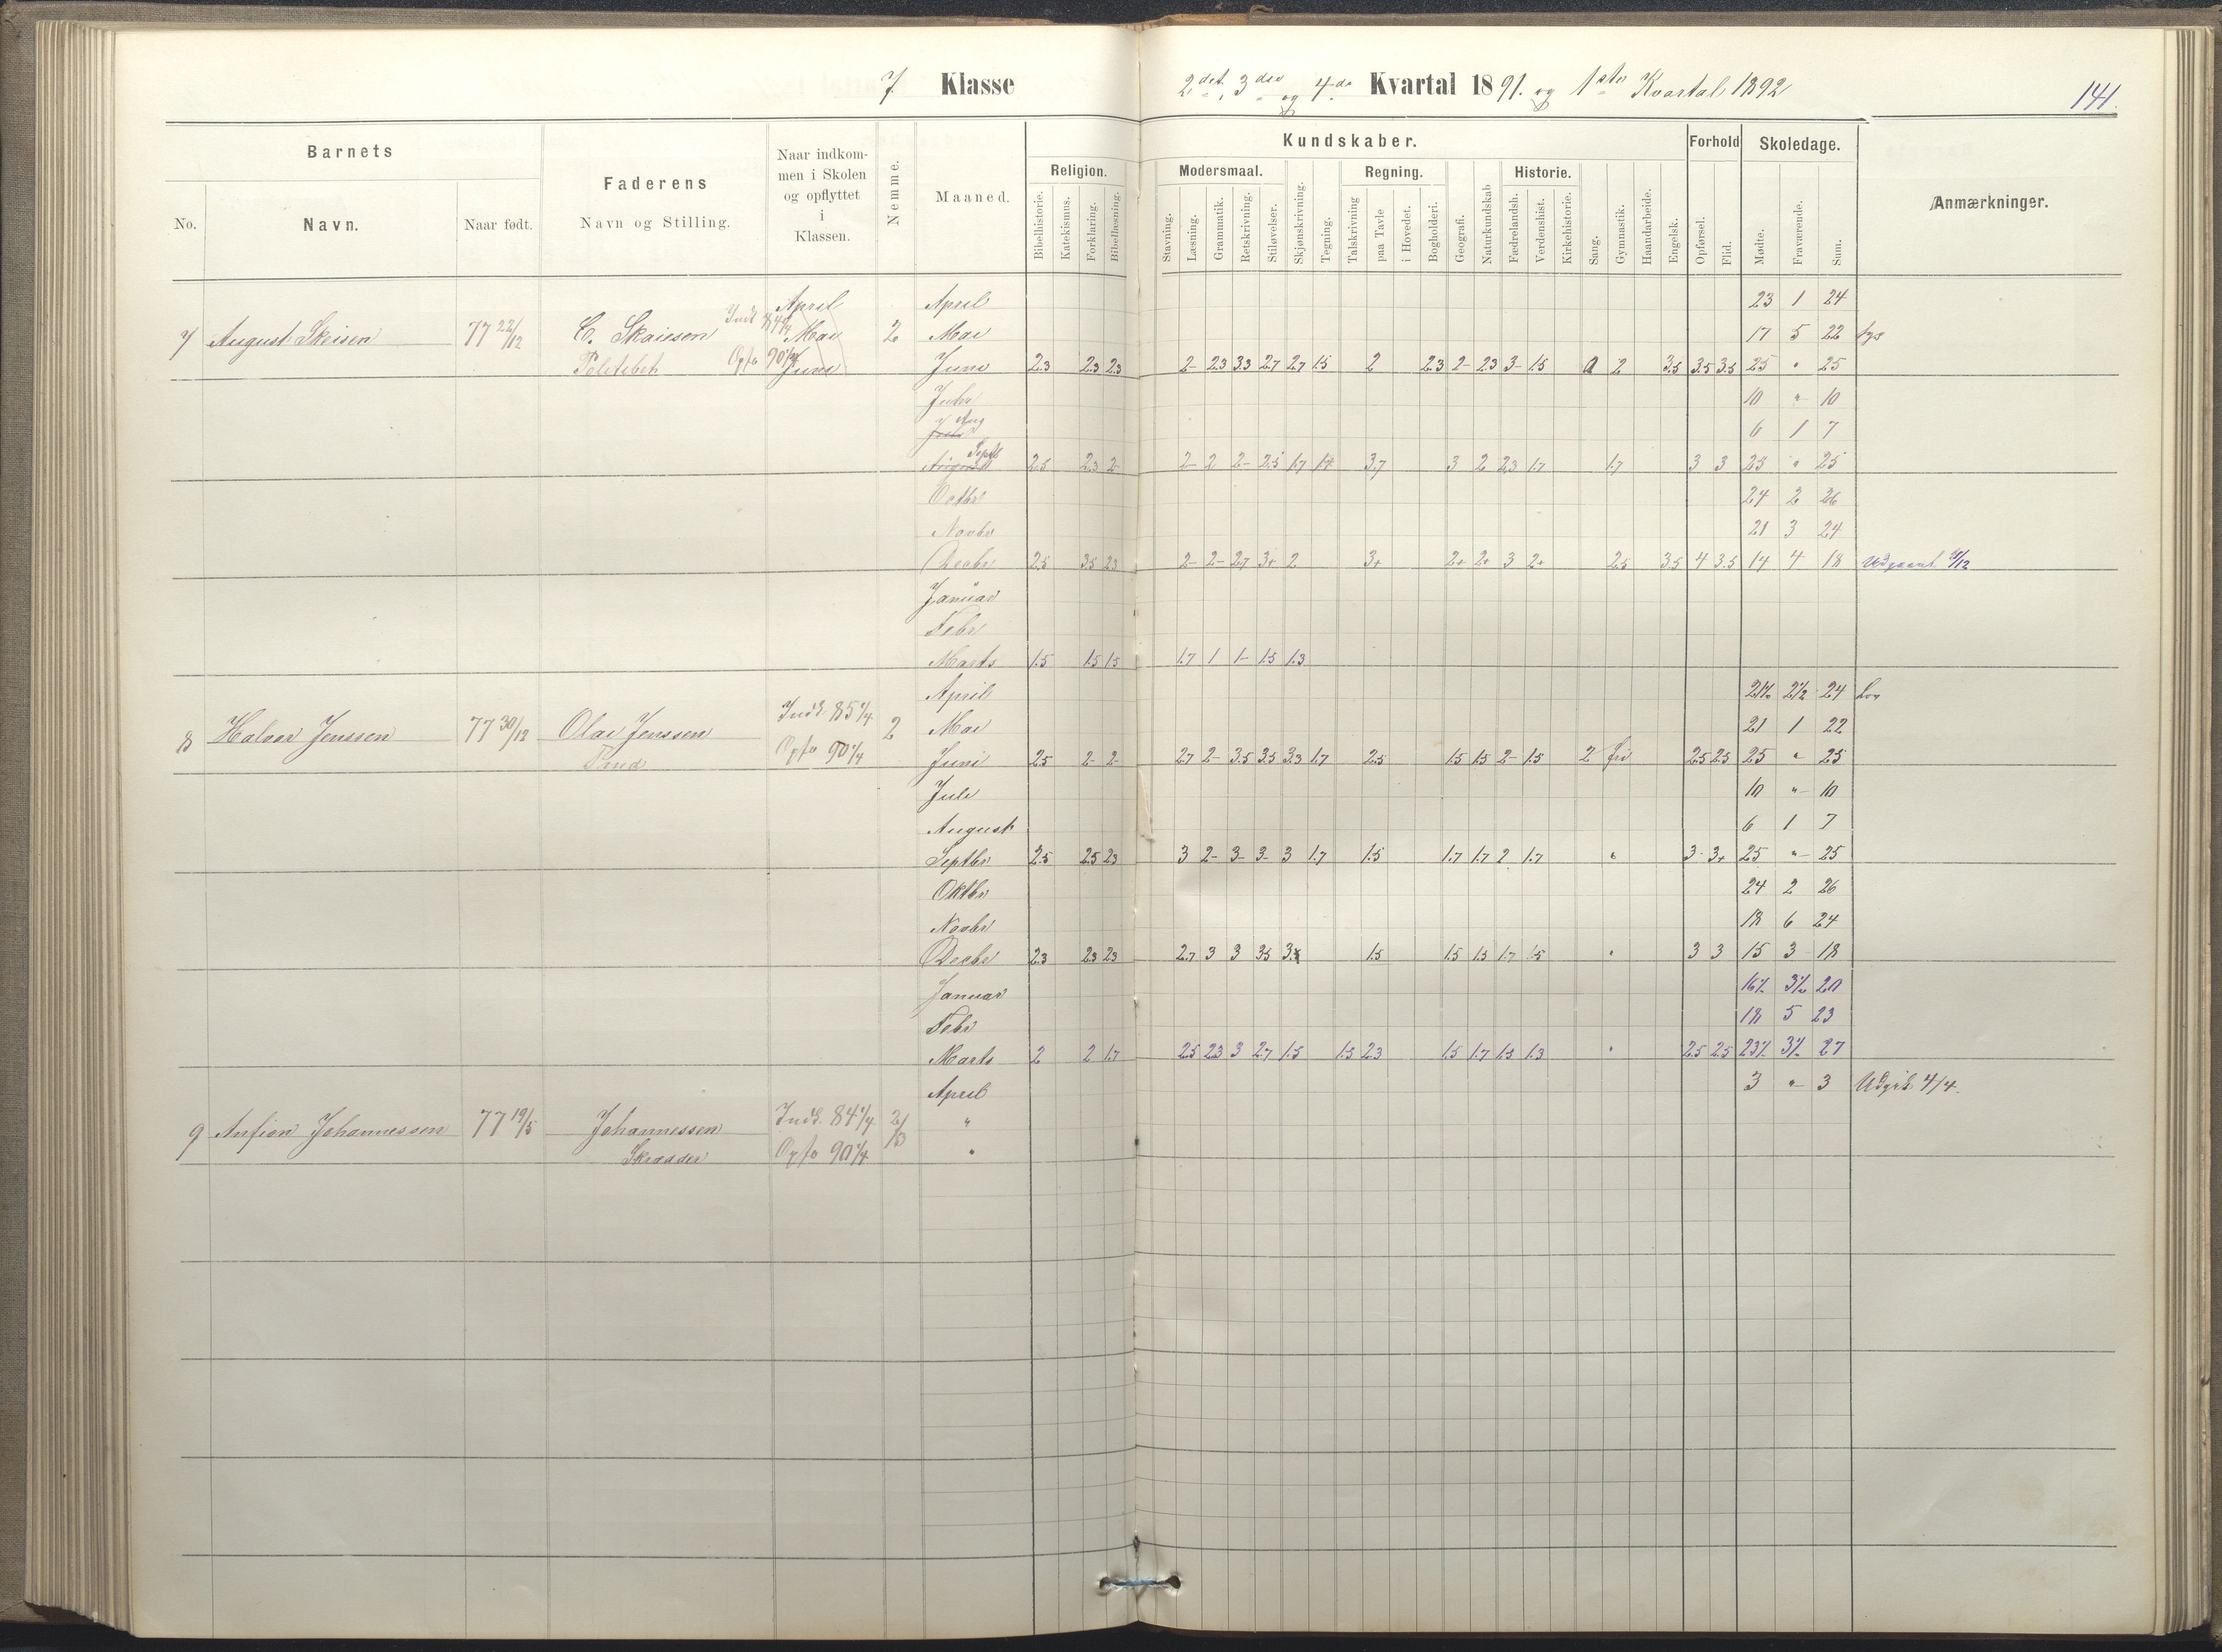 7 Klasse 2det, 3die og 4de Kvartal 1891. og 1ste Kvartal 1892 141.
Barnets Faderens Naar indkommen i Skolen og opflyttet i Klassen. Nemme. Maaned. Kundskaber. Forhold Skoledage. Anmærkninger.
Religion. Modersmaal. Regning. Historie.
No. Navn. Naar født. Navn og Stilling.
Bibelhistorie. Katekismus. Forklaring. Bibellæsning. Stavning. Læsning. Grammatik. Retskrivning. Stiløvelser. Skjønskrivning. Tegning. Talskrivning paa Tavle i Hovedet. Bogholderi. Geografi. Naturkundskab Fædrelandsh. Verdenshist. Kirkehistorie. Sang. Gymnastik. Haandarbeide. Engelsk. Opførsel. Flid. Mødte. Fraværende. Sum.
April April 23 1 24
7 August Skeisen 77 22/12 C. Skaiesen Indk 84 Mai 2 Mai 17 5 22 syg
Opfø 90 1/4 Juni Juni 2.3 2.3 2.3 2- 2.3 3.3 2.7 2.7 1.5 2 2.3 2- 2.3 3- 1.5 0 2 3.5 3.5 3.5 25 " 25
Juli 10 " 10
Aug 6 1 7
Septb 2.5 2.3 2- 2- 2 2- 2.5 1.7 3.7 3 2 2.3 1.7 1.7 3 3 25 " 25
Octbr 24 2 26
Novbr 21 3 24
Decbr 2.5 3.5 2.3 2- 2- 2.7 3+ 2 3+ 2+ 2+ 3 2+ 2.5 3.5 4 3.5 14 4 18 Udgaaet
Januar
Febr
Marts 1.5 1.5 1.5 1.7 1 1- 1.5 1.3
April 21½ 2½ 24
8 Halvor Jenssen 77 30/12 Olai Jenssen Indk. 85 1/4 2 Mai 21 1 22
Opfø 90 1/4 Juni 2.5 2- 2- 2.7 2- 3.5 3.5 3.3 1.7 2.5 1.5 1.5 2- 1.5 2 fri 2.5 2.5 25 " 25
Juli 10 " 10
August 6 1 7
Septbr 2.5 2.5 2.3 3 2- 3- 3- 3 1.7 1.5 1.7 1.7 2 1.7 " 3- 3+ 25 " 25
Oktbr 24 2 26
Novbr 18 6 24
Decbr 2.3 2.3 2.3 2.7 3 3 3.5 1.5 1.5 1.5 1.7 1.5 " 3 3 15 3 18
Januar 16½ 3½ 20
Febr 18 5 23
Marts 2 2 1.7 2.5 2.3 3 2.7 1.5 1.5 2.3 1.5 1.7 1.5 1.3 " 2.5 2.5 23½ 3½ 27
April 3 " 3 Udgik 4/4.
9 Anfion Johannessen 77 19/5 Johannessen Indk. 84 1/4 2/3 "
Skrædder Opfø 90 1/4 "